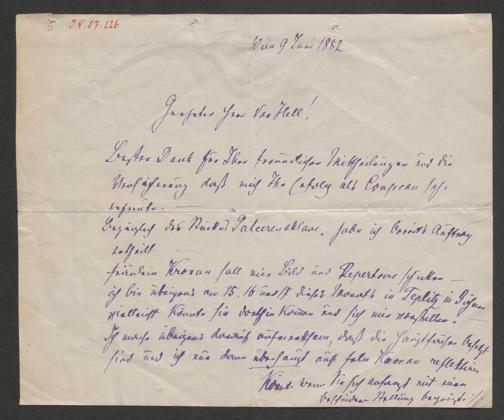 I.N. 87.226
Wien 9 Juni 1882
Geehrter Herr Van Hell!
Besten Dank für Ihre freundlichen Mittheilungen und die
Versicherung daß mich Ihr Erfolg als sehr
erfreute. —
Bezüglich des Stückes habe ich bereits Auftrag
ertheilt
Fräulein Kronau soll mir Bild und Repertoire schicken —
ich bin übrigens am 15, 16 dieses Monats in Teplitz in Böhmen
vielleicht könnte sie dorthin kommen und sich mir vorstellen. —
Ich mache übrigens darauf aufmerksam, daß die besetzt
sind und ich nur dann überhaupt auf Kronau reflektiren
könnte wenn Sie sich anfangs mit einer
bescheidenen Stellung begnügt.